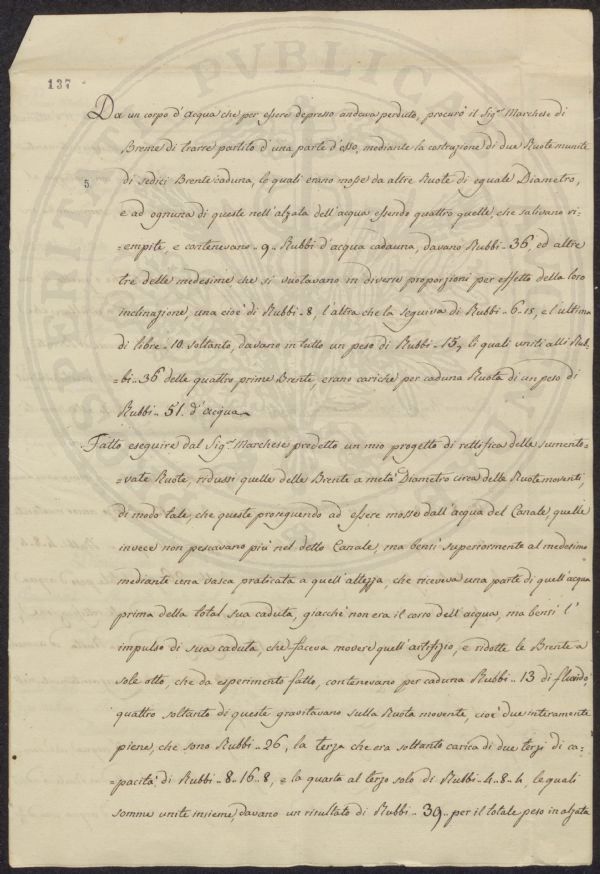 137
Da un corpo d'acqua che per essere depresso andava perduto, procurò il Sig.r Marchese di
Breme di trarre partito d'una parte d'esso, mediante la costruzione di due Ruote munite
5.
di sedici Brente caduna, le quali erano mosse da altre Ruote di eguale Diametro,
e ad ognuna di queste nell'alzata dell'acqua essendo quattro quelle, che salivano ri=
=empite, e contenevano 9. Rubbi d'acqua cadauna, davano Rubbi 36, ed altre
tre delle medesime che si vuotavano in diverse proporzioni per effetto della loro
inclinazione, una cioè di Rubbi 8, l'altra che la seguiva di Rubbi 6.15, e l'ultima
di libre 10 soltanto, davano in tutto un peso di Rubbi 15, le quali uniti alli Rub=
=bi 36 delle quattro prime Brente, erano cariche per caduna Ruota di un peso di
Rubbi 51. d'acqua.
Fatto eseguire dal Sig.r Marchese predetto un mio progetto di rettifica delle sumento=
=vate Ruote, ridussi quelle delle Brente a metà Diametro circa delle Ruote moventi,
di modo tale, che queste proseguendo ad essere mosse dall'acqua del Canale, quelle
invece non pescavano più nel detto Canale, ma bensì superiormente al medesimo
mediante una vasca praticata a quell'altezza, che riceveva una parte di quell'acqua
prima della total sua caduta, giacchè non era il corso dell'acqua, ma bensì l'
impulso di sua caduta, che faceva movere quell'artifizio, e ridotte le Brente a
sole otto, che da esperimento fatto, contenevano per caduna Rubbi 13 di fluido,
quattro soltanto di queste gravitavano sulla Ruota movente, cioè due interamente
piene, che sono Rubbi 26, la terza che era soltanto carica di due terzi di ca=
=pacità, di Rubbi 8.16.8, e la quarta al terzo solo di Rubbi 4.8.4, le quali
somme unite insieme, davano un risultato di Rubbi 39 per il totale peso in alzata